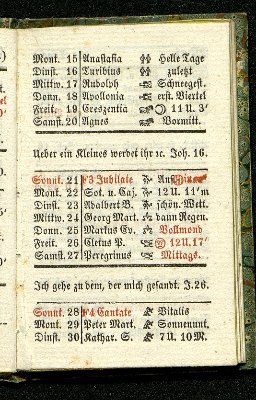 Mont. 15 Anastasia Helle Tage
Dinst. 16 Turibius zuletzt
Mittw. 17 Rudolph Schneegest.
Donn. 18 Apollonia erst. Viertel
Freit. 19 Creszentia 11 U. 3'
Samst. 20 Agnes Vormitt.
Ueber ein Kleines werdet ihr ꝛc. Joh. 16.
Sonnt. 21 F3 Jubilate
Mont. 22 Sot. u. Caj. 12 U. 11'm
Dinst. 23 Adalbert B. schön. Wett.
Mittw. 24 Georg Mart. dann Regen.
Donn. 25 Markus Ev. Vollmond
Freit. 26 Cletus P. 12 U. 17'
Samst. 27 Peregrinus Mittags.
Ich gehe zu dem, der mich gesandt. J. 26.
Sonnt. 28 F4 Cantate Vitalis
Mont. 29 Peter Mart. Sonnenunt.
Dinst. 30 Kathar. S. 7 U. 10 M.